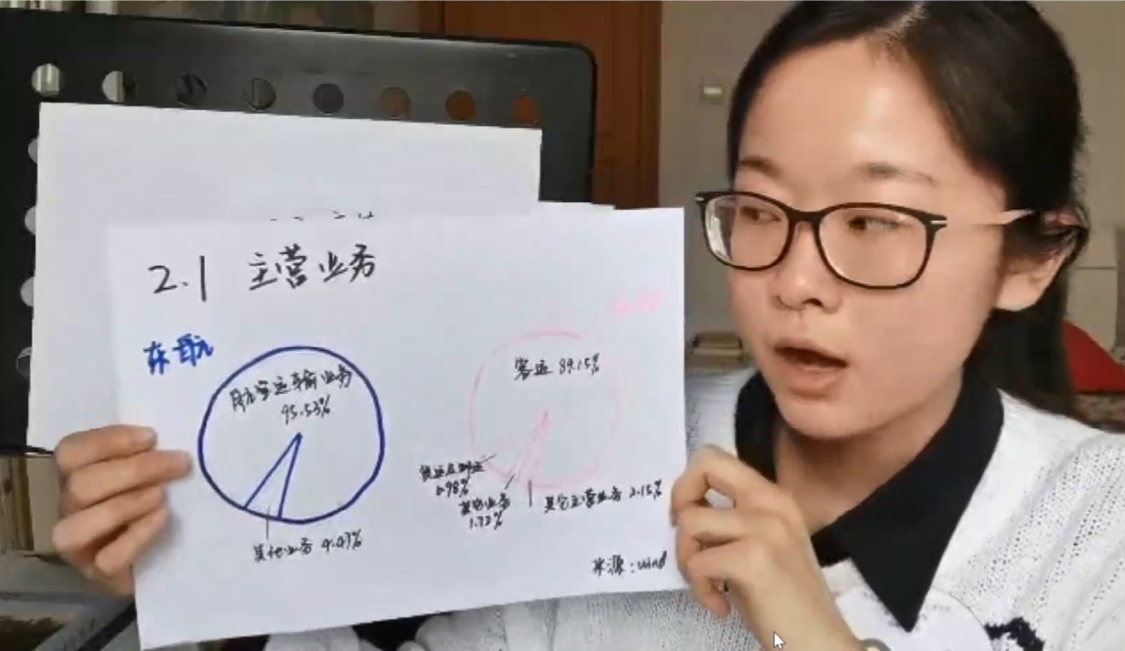 2.1 主营业务
东航
航空客运运输业务
95.53%
其他业务 4.47%
客运 89.15%
货运及邮运
6.98%
其它业务
1.72%
其它主营业务 2.15%
来源:wind